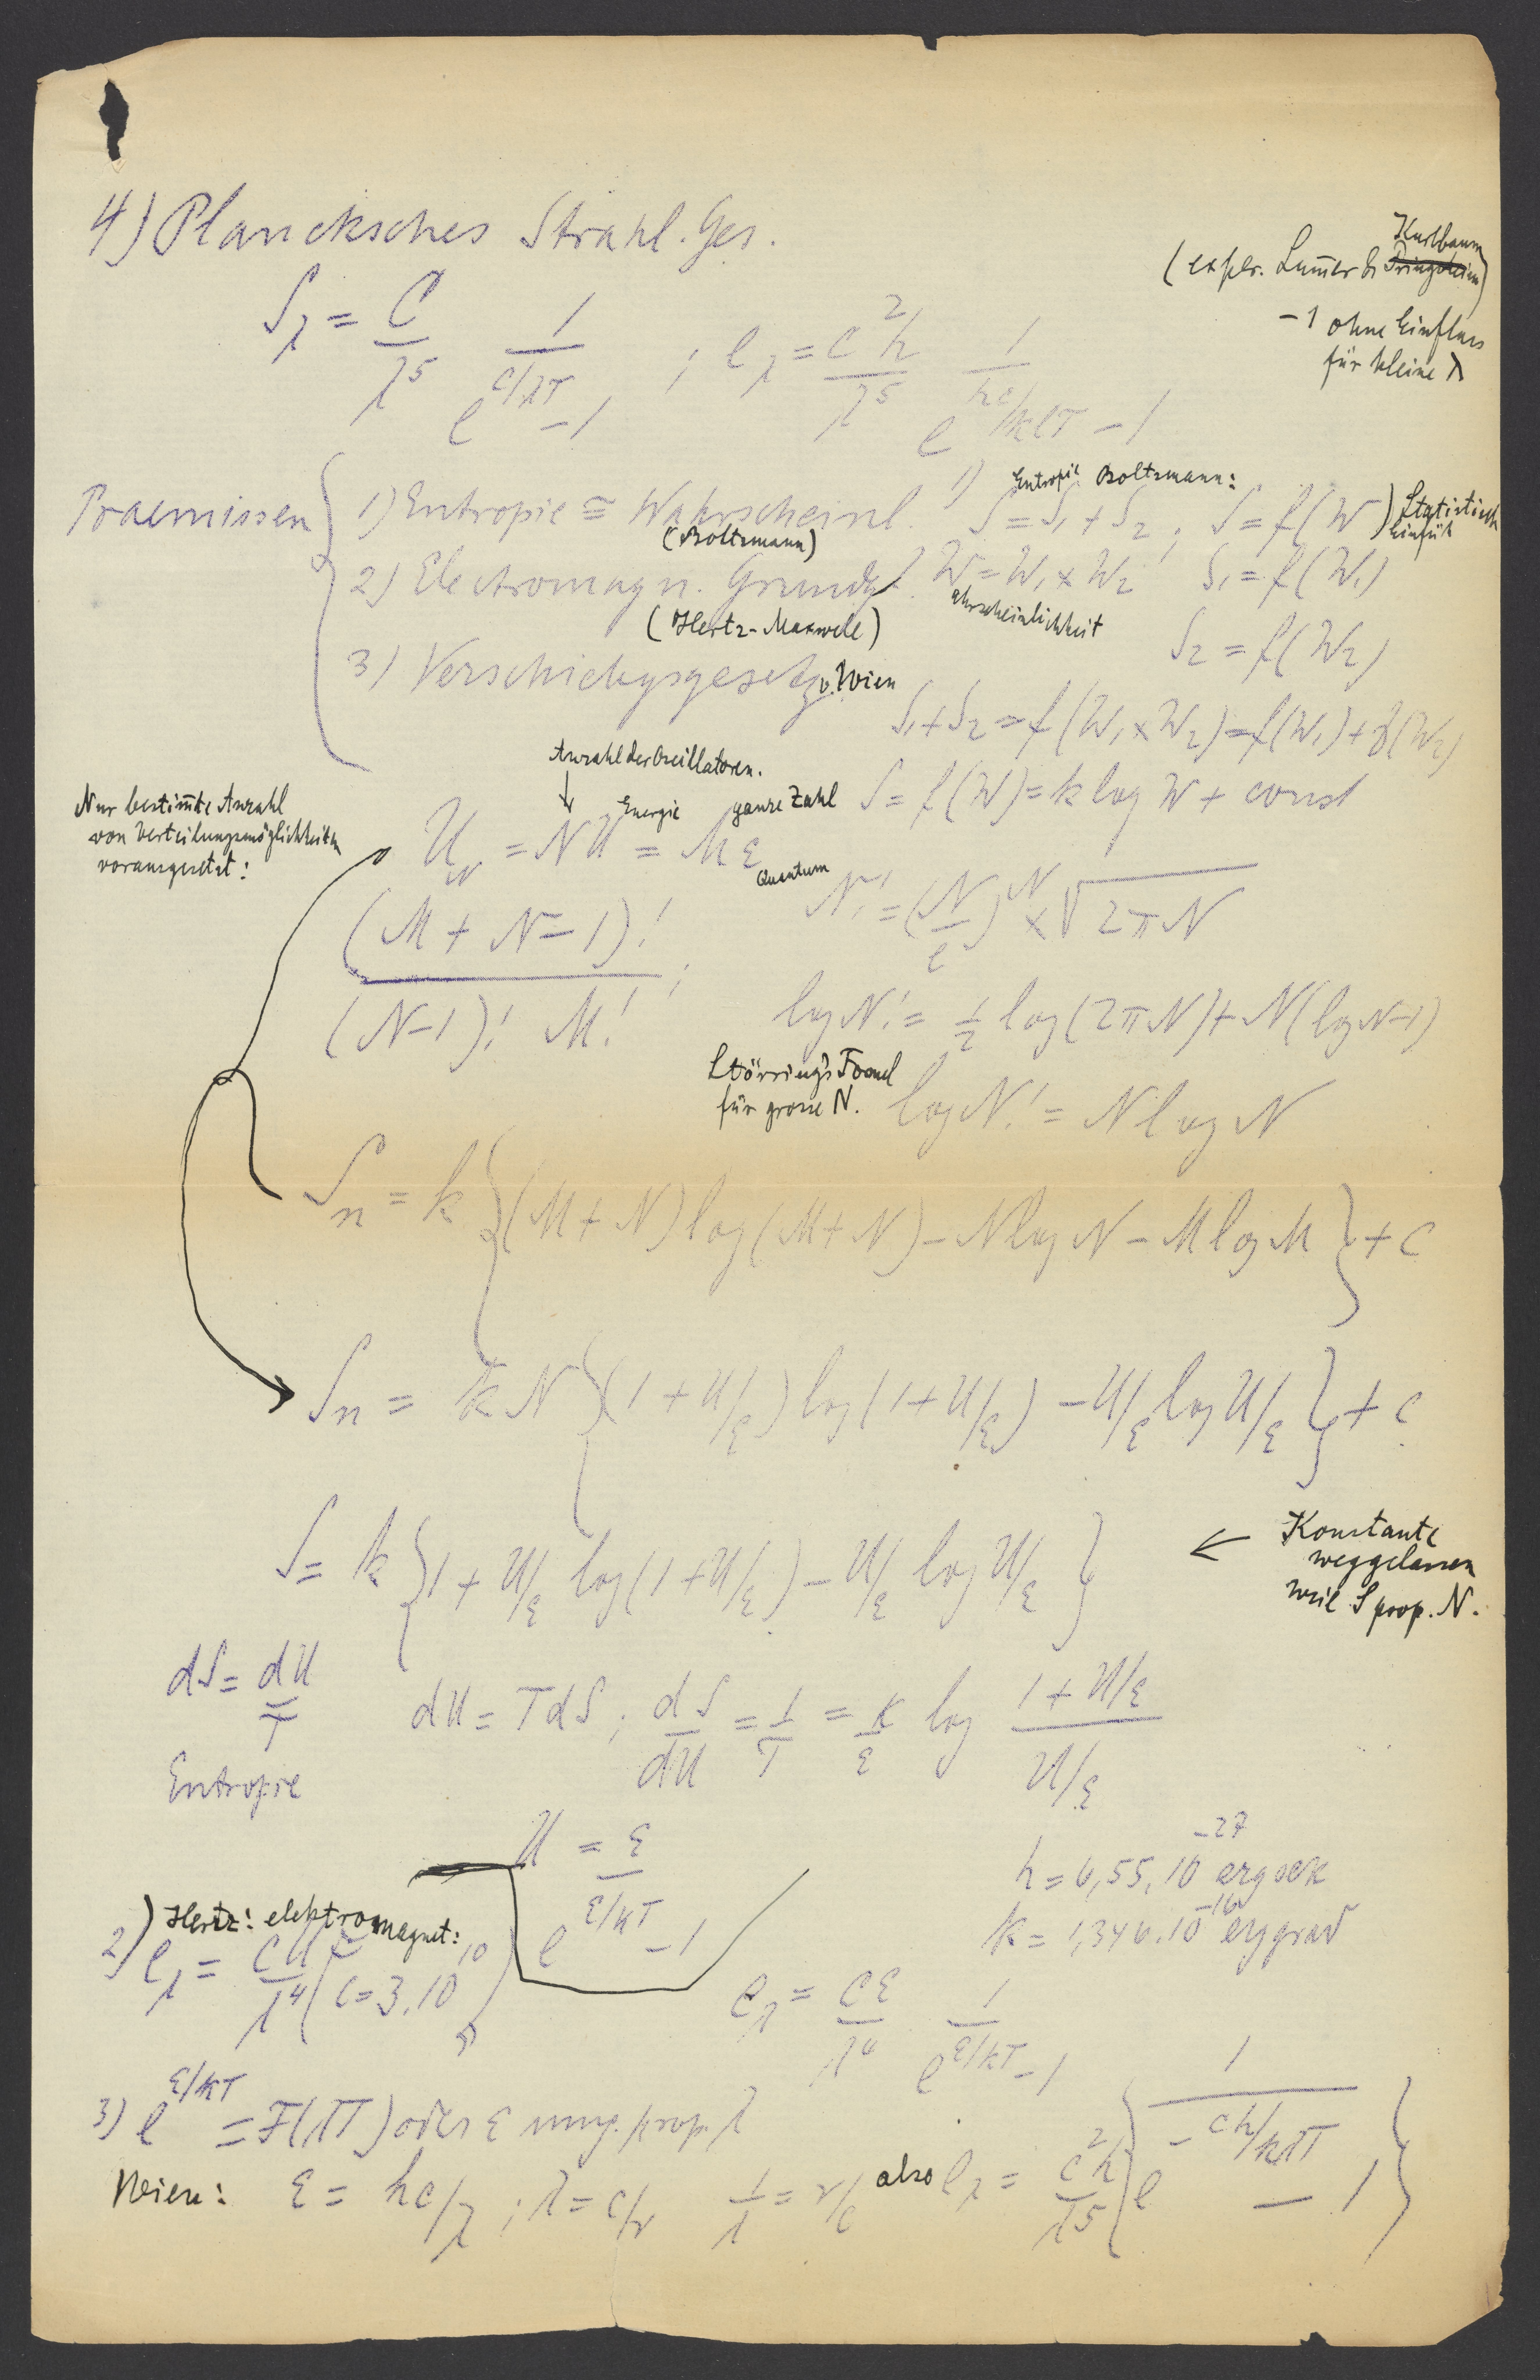 4) Plancksches Strahl. Ges.
(exper. Lum̄er & Pringsheim Kurlbaum)
-1 ohne Einfluss
für kleine λ
S_λ = C/λ^5 1/(e^(c/λT) - 1) ; e_λ = c^2h/λ^5 1/(e^(hc/kλT) - 1)
Praemissen
1) Entropie ≅ Wahrscheinl.
(Boltzmann)
2) Electromagn. Grundgl.
(Hertz-Maxwell)
3) Verschiebgsgesetz v. Wien
1) Entropie Boltzmann:
S = S_1 + S_2 ; S = f(W) Statistisch
W = W_1 × W_2 S_1 = f(W_1)
ahrscheinlichkeit
S_2 = f(W_2)
S_1 + S_2 = f(W_1 × W_2) = f(W_1) + f(W_2)
S = f(W) = k log W + const
Nur bestim̄te Anzahl
von Verteilungsmöglichkeiten
vorausgesetzt:
Anzahl der Oscillatoren.
↓ Energie ganze Zahl
U_N = NU = Mε
Quantum
(M + N - 1)!/((N-1)! M!) ;
N! = (N/e)^N × √(2πN)
log N! = 1/2 log(2πN) + N(log N-1)
Störring's Formel
für grosse N.
log N! = N log N
S_n = k {(M + N) log(M + N) - N log N - M log M} + c
S_n = kN {(1 + U/ε) log(1 + U/ε) - U/ε log U/ε} + c
S = k {1 + U/ε log(1 + U/ε) - U/ε log U/ε}
← Konstante
weggelassen
weil S prop. N.
dS = dU/T
Entropie
dU = TdS ; dS/dU = 1/T = k/ε log (1 + U/ε)/(U/ε)
U = ε/(e^(ε/kT) - 1)
h = 6,55.10^-27 erg sek
k = 1,346.10^-16 erg grad
2) Hertz: elektromagnet:
e_λ = cU/λ^4 (c = 3.10^10)
e_λ = cε/λ^4 1/(e^(ε/kT) - 1)
3) e^(ε/kT) = F(λT) oder ε umg. prop. λ
Wien: ε = hc/λ ; λ = c/ν 1/λ = ν/c also e_λ = c^2h/λ^5 {1/(e^(-ch/kλT) - 1)}